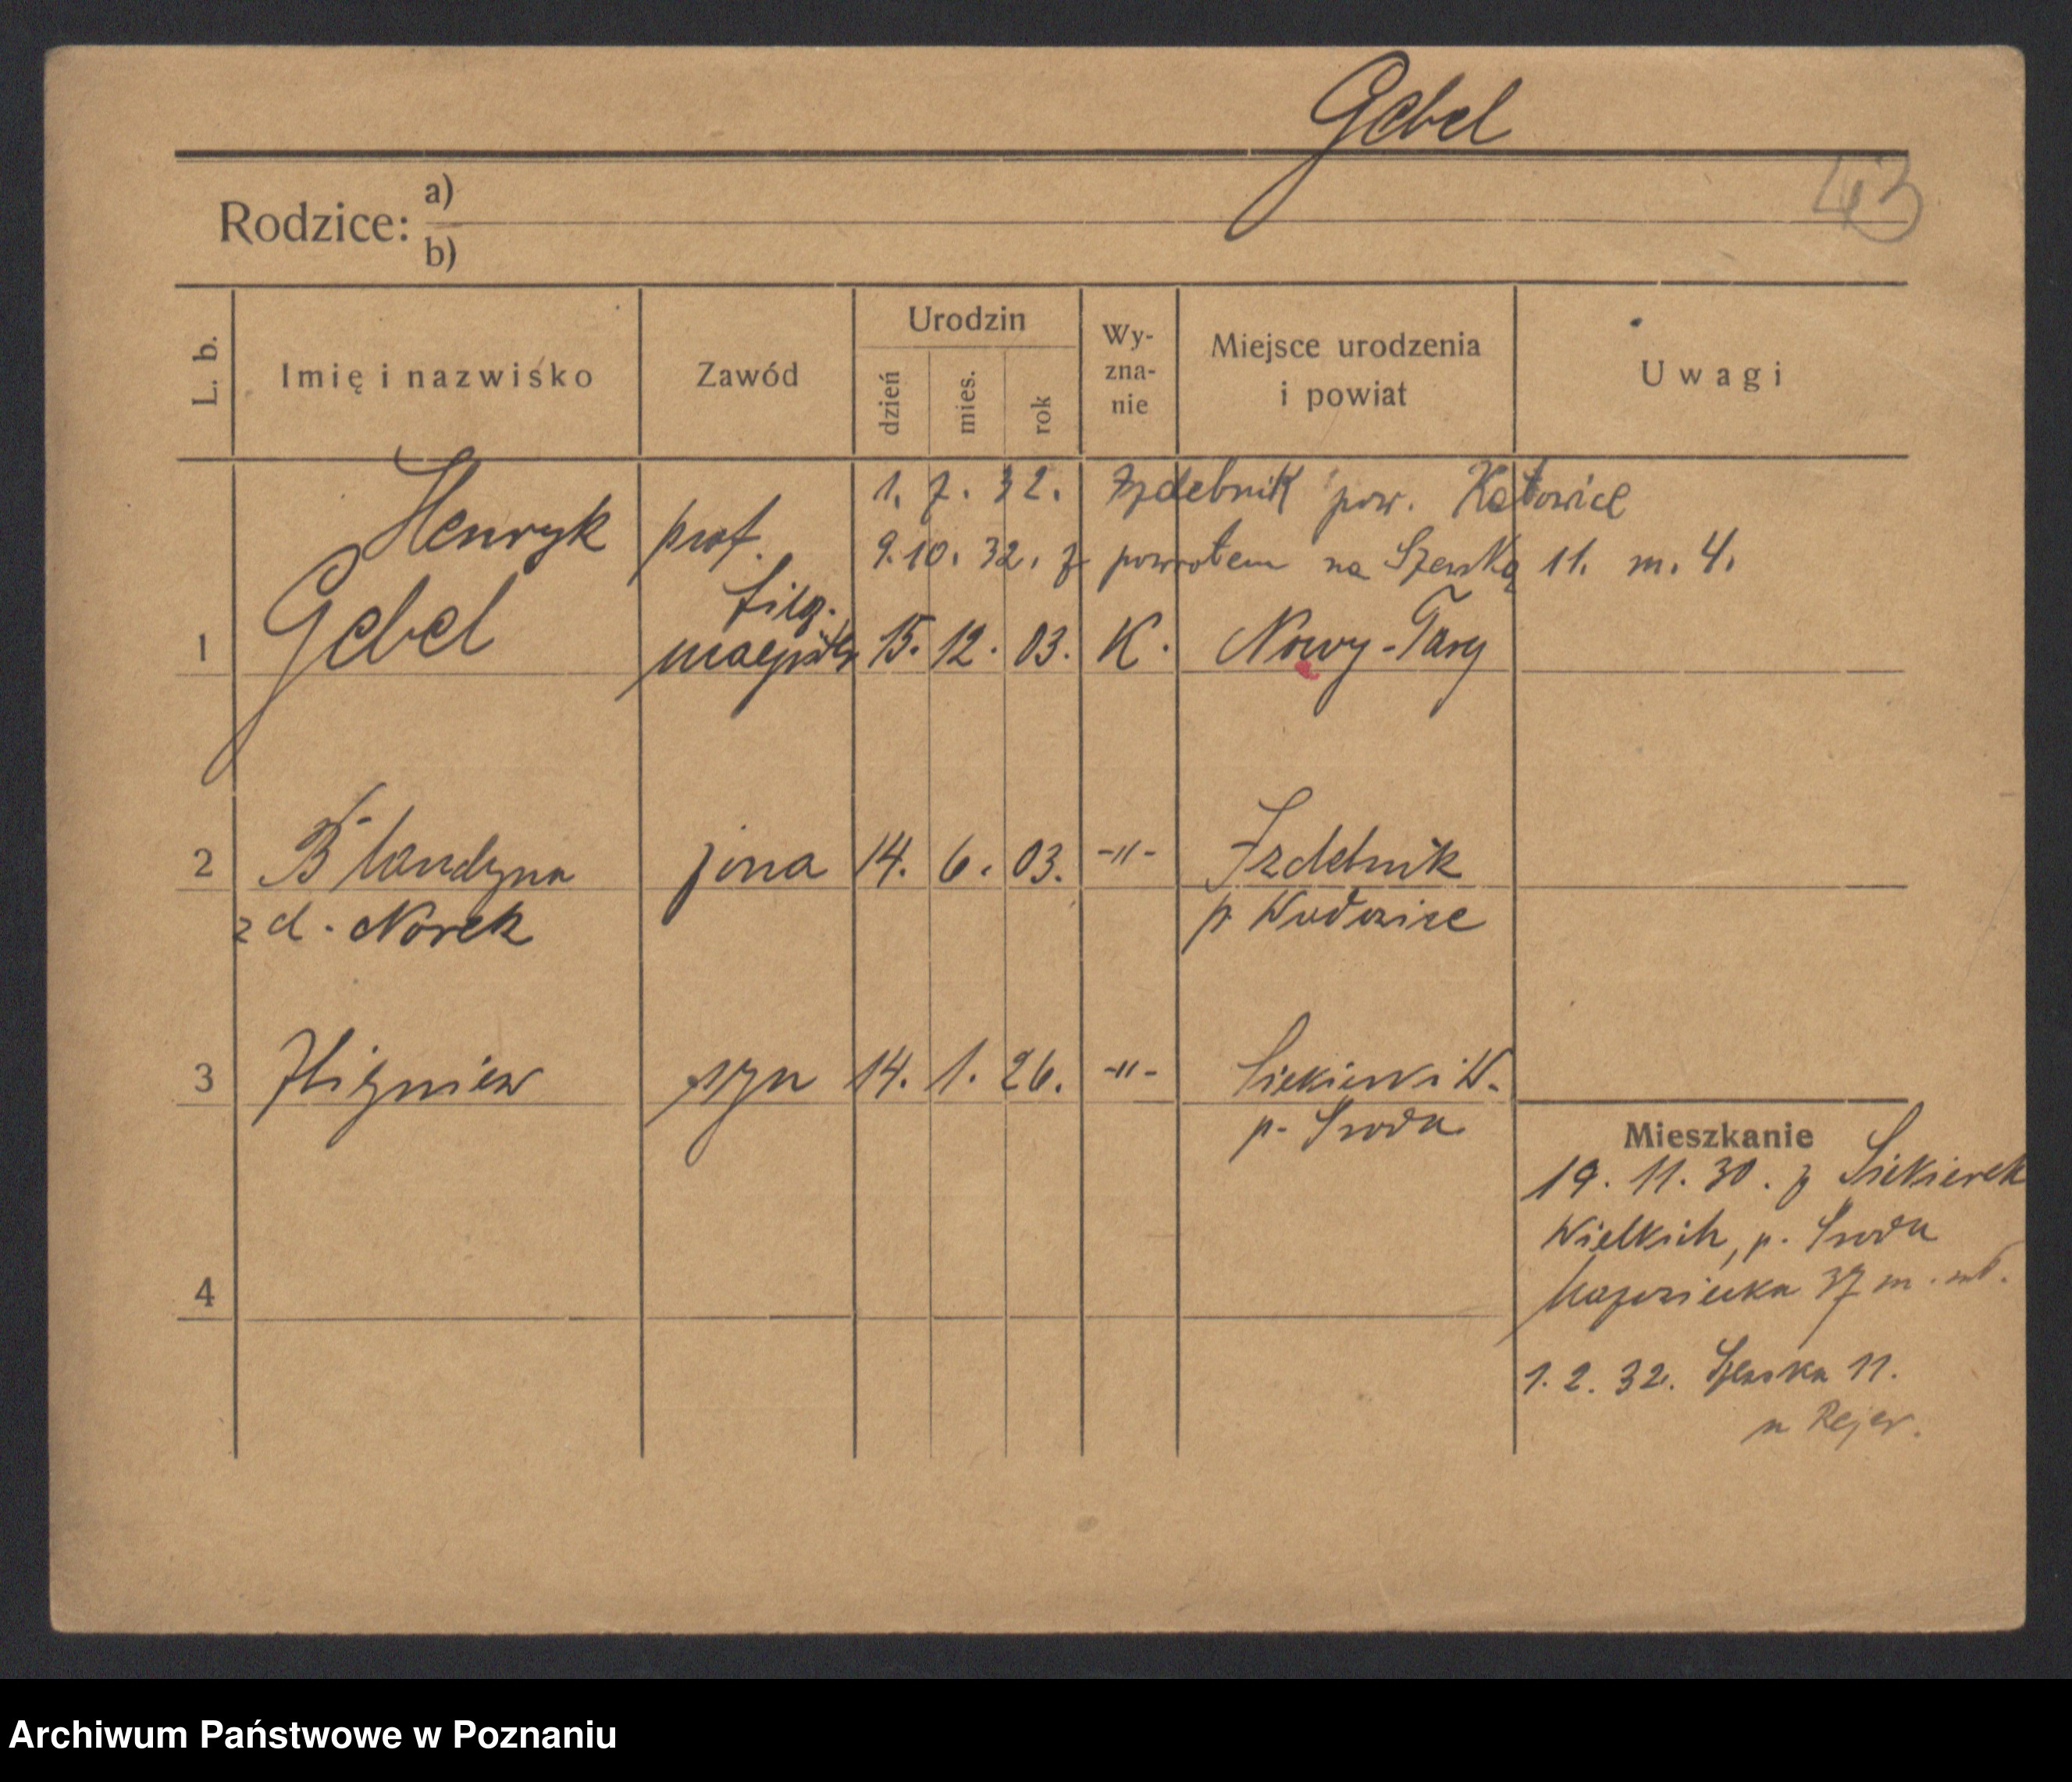 Gebel
43
Rodzice: a)
b)
L. b.
Imię i nazwisko
Zawód
Urodzin
dzień
mies.
rok
Wy-
zna-
nie
Miejsce urodzenia
i powiat
Uwagi
1. 7. 32. Izdebnik pow. Katowice
9.10. 32. z powrotem na Szewską 11. m. 4.
1 Henryk Gebel prof. 15. 12. 03. K. Nowy-Targ
2 Blandyna żona 14. 6. 03. -"- Izdebnik
z d. Norek p. Wadowice
3 Zbigniew syn 14. 1. 26. -"- Siekierki W.
p. Sroda
4
Mieszkanie
19. 11. 30. z Siekierek
Wielkich, p. Sroda
37 m.
1. 2. 32. 11.
u Rejer.
Archiwum Państwowe w Poznaniu